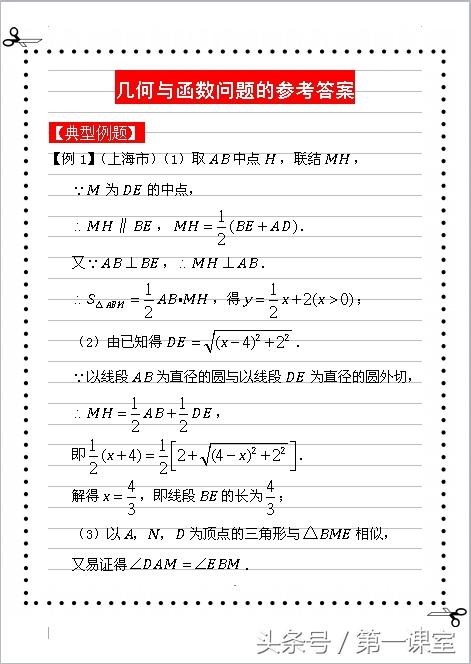 几何与函数问题的参考答案
【典型例题】
【例1】（上海市）（1）取 AB 中点 H，联结 MH，
∵M 为 DE 的中点，
∴MH∥BE，MH=1/2(BE+AD)．
又∵AB⊥BE，∴MH⊥AB．
∴S△ABM=1/2AB•MH，得 y=1/2x+2(x>0)；
（2）由已知得 DE=√((x-4)²+2²)．
∵以线段 AB 为直径的圆与以线段 DE 为直径的圆外切，
∴MH=1/2AB+1/2DE，
即1/2(x+4)=1/2[2+√((4-x)²+2²)]．
解得 x=4/3，即线段 BE 的长为4/3；
（3）以 A，N，D 为顶点的三角形与△BME 相似，
又易证得∠DAM=∠EBM．
头条号／第一课室